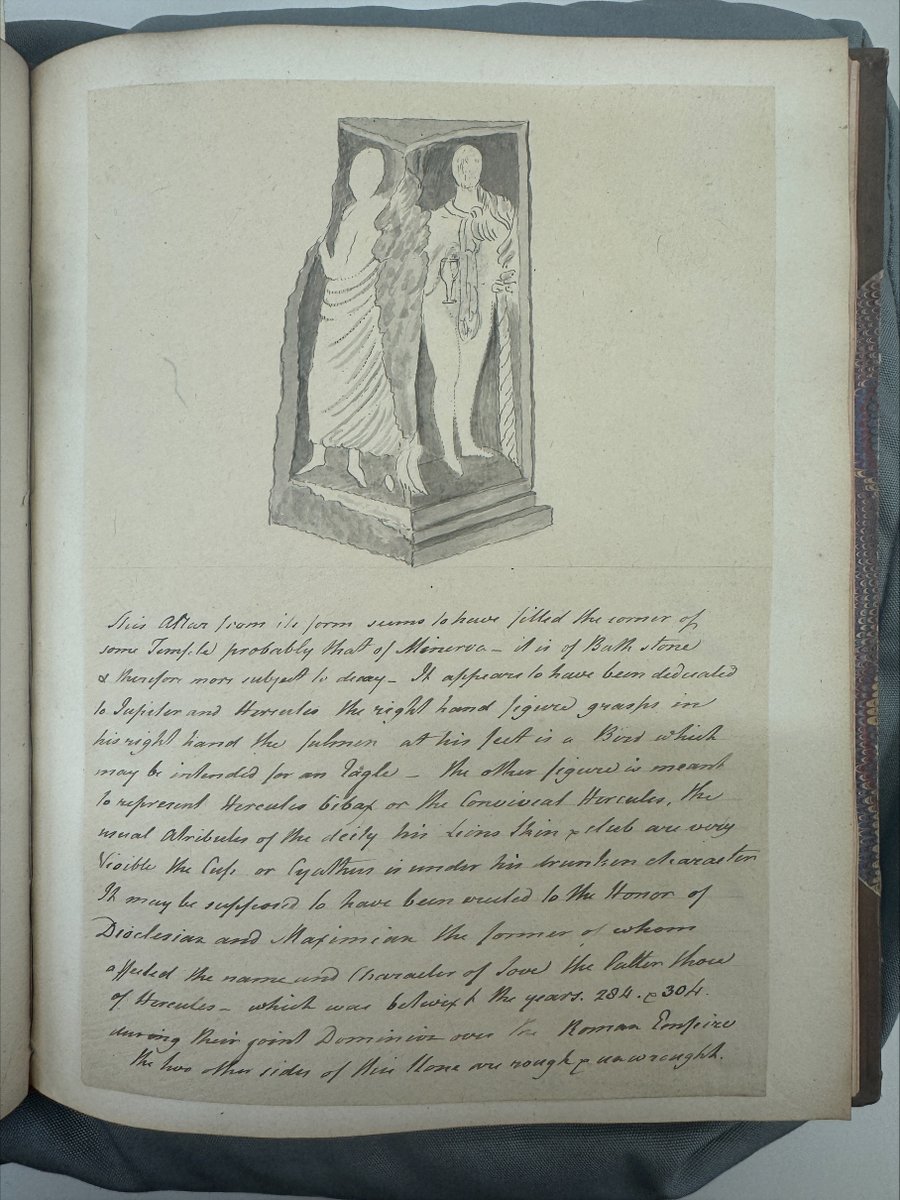 This Altar from its form seems to have filled the corner of
some Temple probably that of Minerva – it is of Bath stone
& therefore more subject to decay – It appears to have been dedicated
to Jupiter and Hercules the right hand figure grasps in
his right hand the fulmen at his feet is a Bird which
may be intended for an Eagle – the other figure is meant
to represent Hercules bibax or the Convivial Hercules, the
usual Atributes of the deity his Lions Skin & club are very
Visible the Cup or Cyathus is under his drunken character
It may be supposed to have been erected to the Honor of
Dioclesian and Maximian the former of whom
affected the name and Character of Jove the latter those
of Hercules – which was betwixt the years. 284. & 304.
during their joint Dominion over the Roman Empire
The two other sides of this Stone are rough & unwrought.